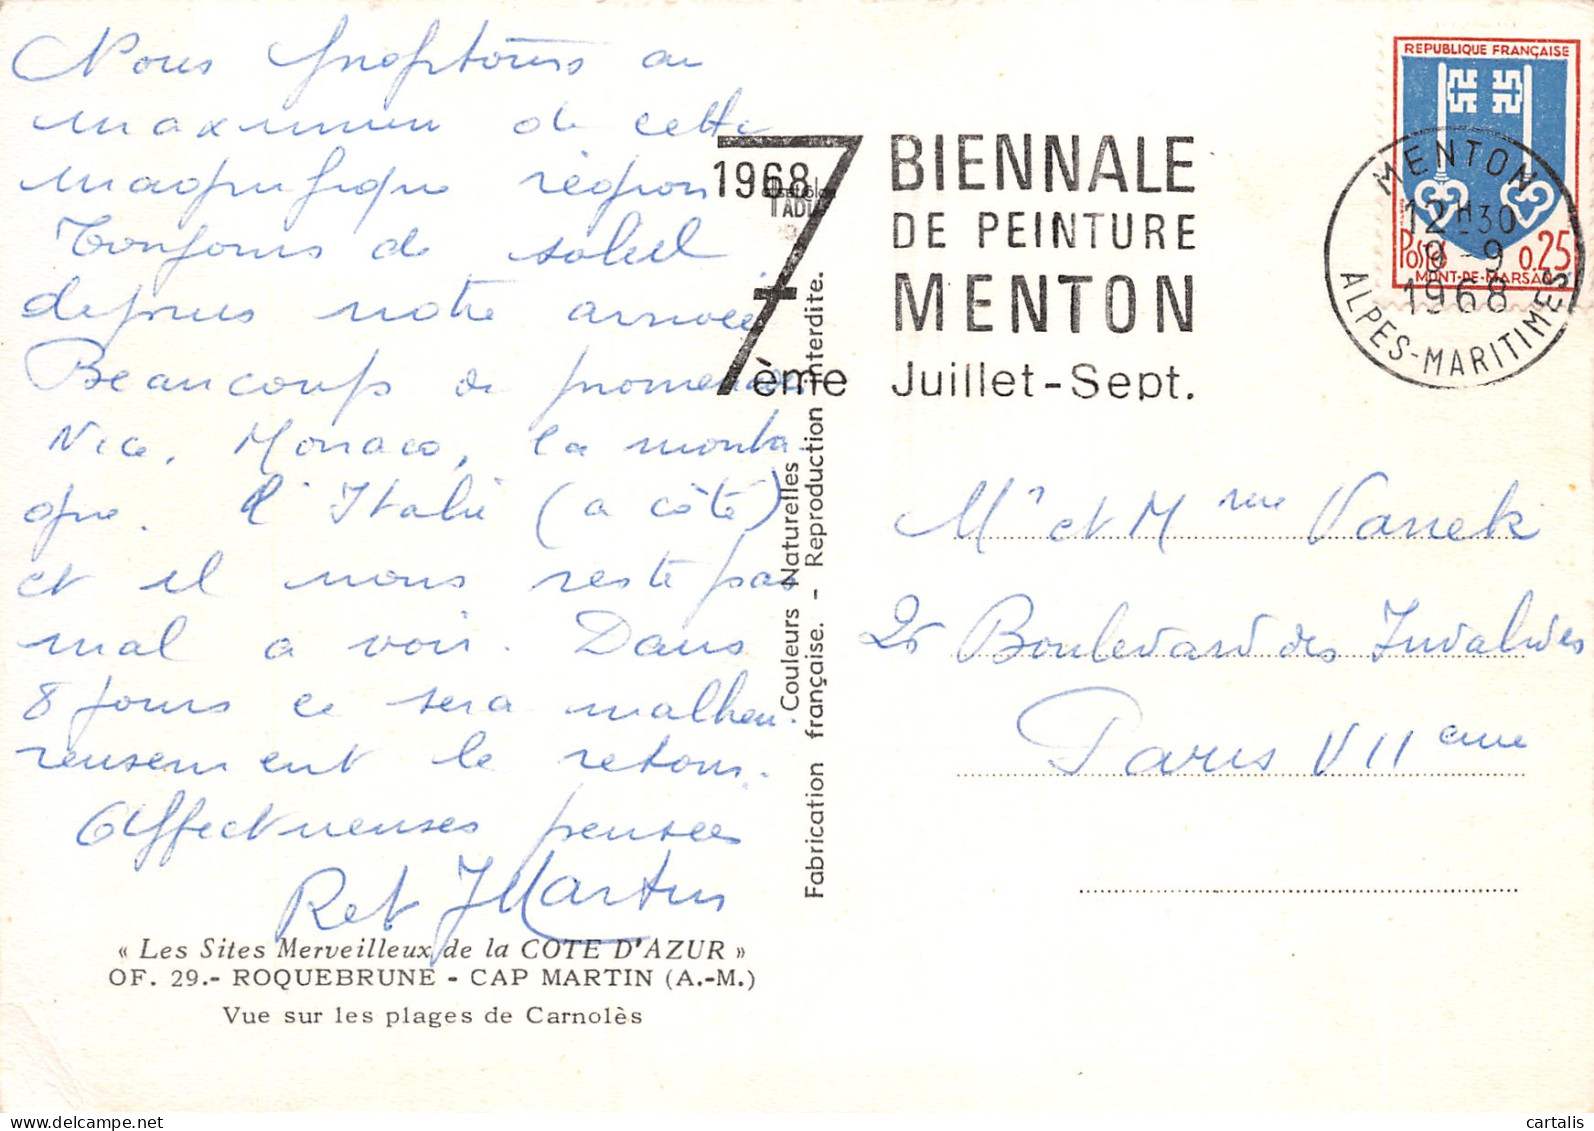 Nous profitons au
maximum de cette
magnifique région
Toujours du soleil
depuis notre arrivée
Beaucoup de promenades
Nice, Monaco, la monta-
gne. l'Italie (a côté)
et il nous reste pas
mal a voir. Dans
8 jours ce sera malheu-
reusement le retour.
Affectueuses pensées
R et J Martin
« Les Sites Merveilleux de la COTE D'AZUR »
OF. 29.- ROQUEBRUNE - CAP MARTIN (A.-M.)
Vue sur les plages de Carnolès
Couleurs Naturelles
Fabrication française. - Reproduction interdite.
1968
7ème
BIENNALE
DE PEINTURE
MENTON
Juillet-Sept.
REPUBLIQUE FRANÇAISE
POSTES 0.25
MONT-DE-MARSAN
MENTON
12H30
9-9
1968
ALPES-MARITIMES
Mr et Mme Vanek
25 Boulevard des Invalides
Paris VIIeme
cartalis